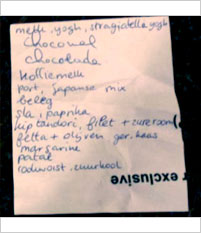 melk, yogh, stragiatella yogh
Chocomel
chocolada
koffiemelk
port, japanse mix
beleg
sla, paprika
kip tandori, filet + zureroom
fetta + olijven ger. kaas
margarine
patat
rodwoist. zuurkool
r exclusive